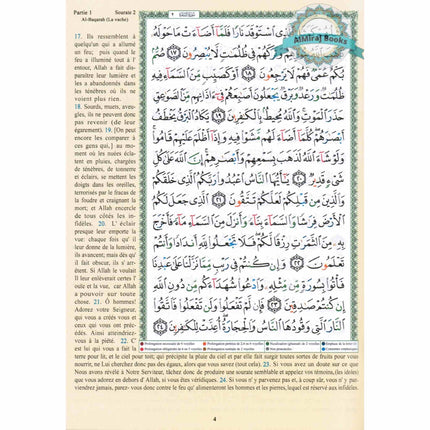 Partie 1
Sourate 2
Al-Baqarah (La vache)
AlMiraj Books
17. Ils ressemblent à
quelqu'un qui a allumé
un feu; puis quand le
feu a illuminé tout à l'
entour, Allah a fait dis-
paraître leur lumière et
les a abandonnés dans
les ténèbres où ils ne
voient plus rien.
18. Sourds, muets, aveu-
gles, ils ne peuvent donc
pas revenir (de leur
égarement). 19. [On peut
encore les comparer à
ces gens qui,] au mo-
ment où les nuées écla-
tent en pluies, chargées
de ténèbres, de tonnerre
et éclairs, se mettent les
doigts dans les oreilles,
terrorisés par le fracas de
la foudre et craignant la
mort; et Allah encercle
de tous côtés les in-
fidèles. 20. L' éclair
presque leur emporte la
vue: chaque fois qu' il
leur donne de la lumière,
ils avancent; mais dès qu'
il fait obscur, ils s' arr-
êtent. Si Allah le voulait
Il leur enlèverait certes l'
ouïe et la vue, car Allah
a pouvoir sur toute
chose. 21. Ô hommes!
Adorez votre Seigneur,
qui vous a créés vous et
ceux qui vous ont préc-
édés. Ainsi atteindriez-
vous à la piété. 22. C'
est lui qui vous a fait la
terre pour lit, et le ciel pour toit; qui précipite la pluie du ciel et par elle fait surgir toutes sortes de fruits pour vous
nourrir, ne Lui cherchez donc pas des égaux, alors que vous savez (tout cela). 23. Si vous avez un doute sur ce que
Nous avons révélé à Notre Serviteur, tâchez donc de produire une sourate semblable et appelez vos témoins, (les idols)
que vous adorez en dehors d' Allah, si vous êtes véridiques. 24. Si vous n' y parvenez pas et, à coup sûr, vous n' y par-
viendrez jamais, parez-vous donc contre le feu qu' alimenteront les hommes et les pierres, lequel est réservé aux infidèles.
ٱلَّذِى ٱسْتَوْقَدَ نَارًا فَلَمَّآ أَضَآءَتْ مَا حَوْلَهُۥ
وَتَرَكَهُمْ فِى ظُلُمَٰتٍ لَّا يُبْصِرُونَ ١٧
بُكْمٌ عُمْىٌ فَهُمْ لَا يَرْجِعُونَ ١٨ أَوْ كَصَيِّبٍ مِّنَ ٱلسَّمَآءِ
فِيهِ ظُلُمَٰتٌ وَرَعْدٌ وَبَرْقٌ يَجْعَلُونَ أَصَٰبِعَهُمْ فِىٓ ءَاذَانِهِم مِّنَ ٱلصَّوَٰعِقِ
حَذَرَ ٱلْمَوْتِ وَٱللَّهُ مُحِيطٌۢ بِٱلْكَٰفِرِينَ ١٩ يَكَادُ ٱلْبَرْقُ يَخْطَفُ
أَبْصَٰرَهُمْ كُلَّمَآ أَضَآءَ لَهُم مَّشَوْا۟ فِيهِ وَإِذَآ أَظْلَمَ عَلَيْهِمْ قَامُوا۟
وَلَوْ شَآءَ ٱللَّهُ لَذَهَبَ بِسَمْعِهِمْ وَأَبْصَٰرِهِمْ إِنَّ ٱللَّهَ عَلَىٰ كُلِّ
شَىْءٍ قَدِيرٌ ٢٠ يَٰٓأَيُّهَا ٱلنَّاسُ ٱعْبُدُوا۟ رَبَّكُمُ ٱلَّذِى خَلَقَكُمْ
وَٱلَّذِينَ مِن قَبْلِكُمْ لَعَلَّكُمْ تَتَّقُونَ ٢١ ٱلَّذِى جَعَلَ لَكُمُ
ٱلْأَرْضَ فِرَٰشًا وَٱلسَّمَآءَ بِنَآءً وَأَنزَلَ مِنَ ٱلسَّمَآءِ مَآءً فَأَخْرَجَ بِهِۦ
مِنَ ٱلثَّمَرَٰتِ رِزْقًا لَّكُمْ فَلَا تَجْعَلُوا۟ لِلَّهِ أَندَادًا وَأَنتُمْ
تَعْلَمُونَ ٢٢ وَإِن كُنتُمْ فِى رَيْبٍ مِّمَّا نَزَّلْنَا عَلَىٰ عَبْدِنَا
فَأْتُوا۟ بِسُورَةٍ مِّن مِّثْلِهِۦ وَٱدْعُوا۟ شُهَدَآءَكُم مِّن دُونِ ٱللَّهِ
إِن كُنتُمْ صَٰدِقِينَ ٢٣ فَإِن لَّمْ تَفْعَلُوا۟ وَلَن تَفْعَلُوا۟ فَٱتَّقُوا۟
ٱلنَّارَ ٱلَّتِى وَقُودُهَا ٱلنَّاسُ وَٱلْحِجَارَةُ أُعِدَّتْ لِلْكَٰفِرِينَ ٢٤
4